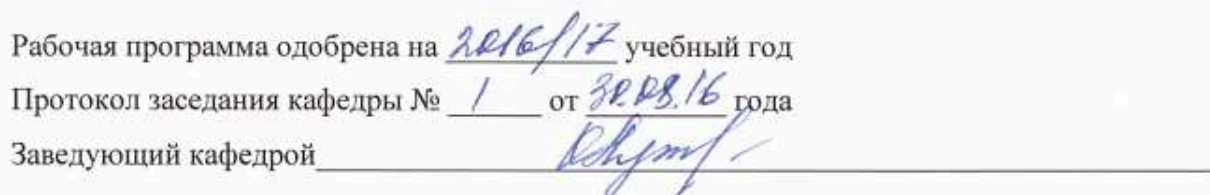 Рабочая программа одобрена на 2016/17 учебный год
Протокол заседания кафедры № 1 от 30.08.16 года
Заведующий кафедрой